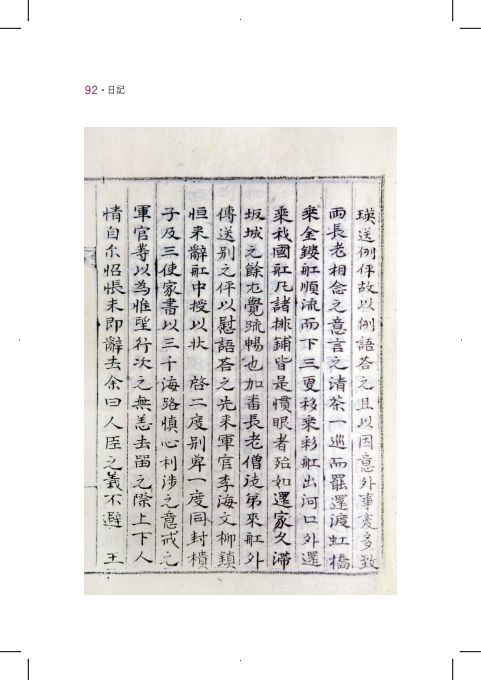 92 · 日記
瑛送例伻故以例語荅之且以因意外事变多致
兩長老相念之意言之清茶一巡而罷還渡虹橋
乘金鏤舡順流而下三更移乘彩舡出河口外還
乘我國舡凡諸排鋪皆是慣眼者殆如還家久滯
坂城之餘尤覺踈暢也加番長老僧徒弟來舡外
傳送別之伻以慰語荅之先來軍官李海文柳鎮
恒來辭舡中授以狀 啓二度別單一度同封樻
子及三使家書以三千海路慎心利涉之意戒之
軍官等以為惟望行次之無恙去留之際上下人
情自不怊悵未即辭去余曰人臣之義不避 王